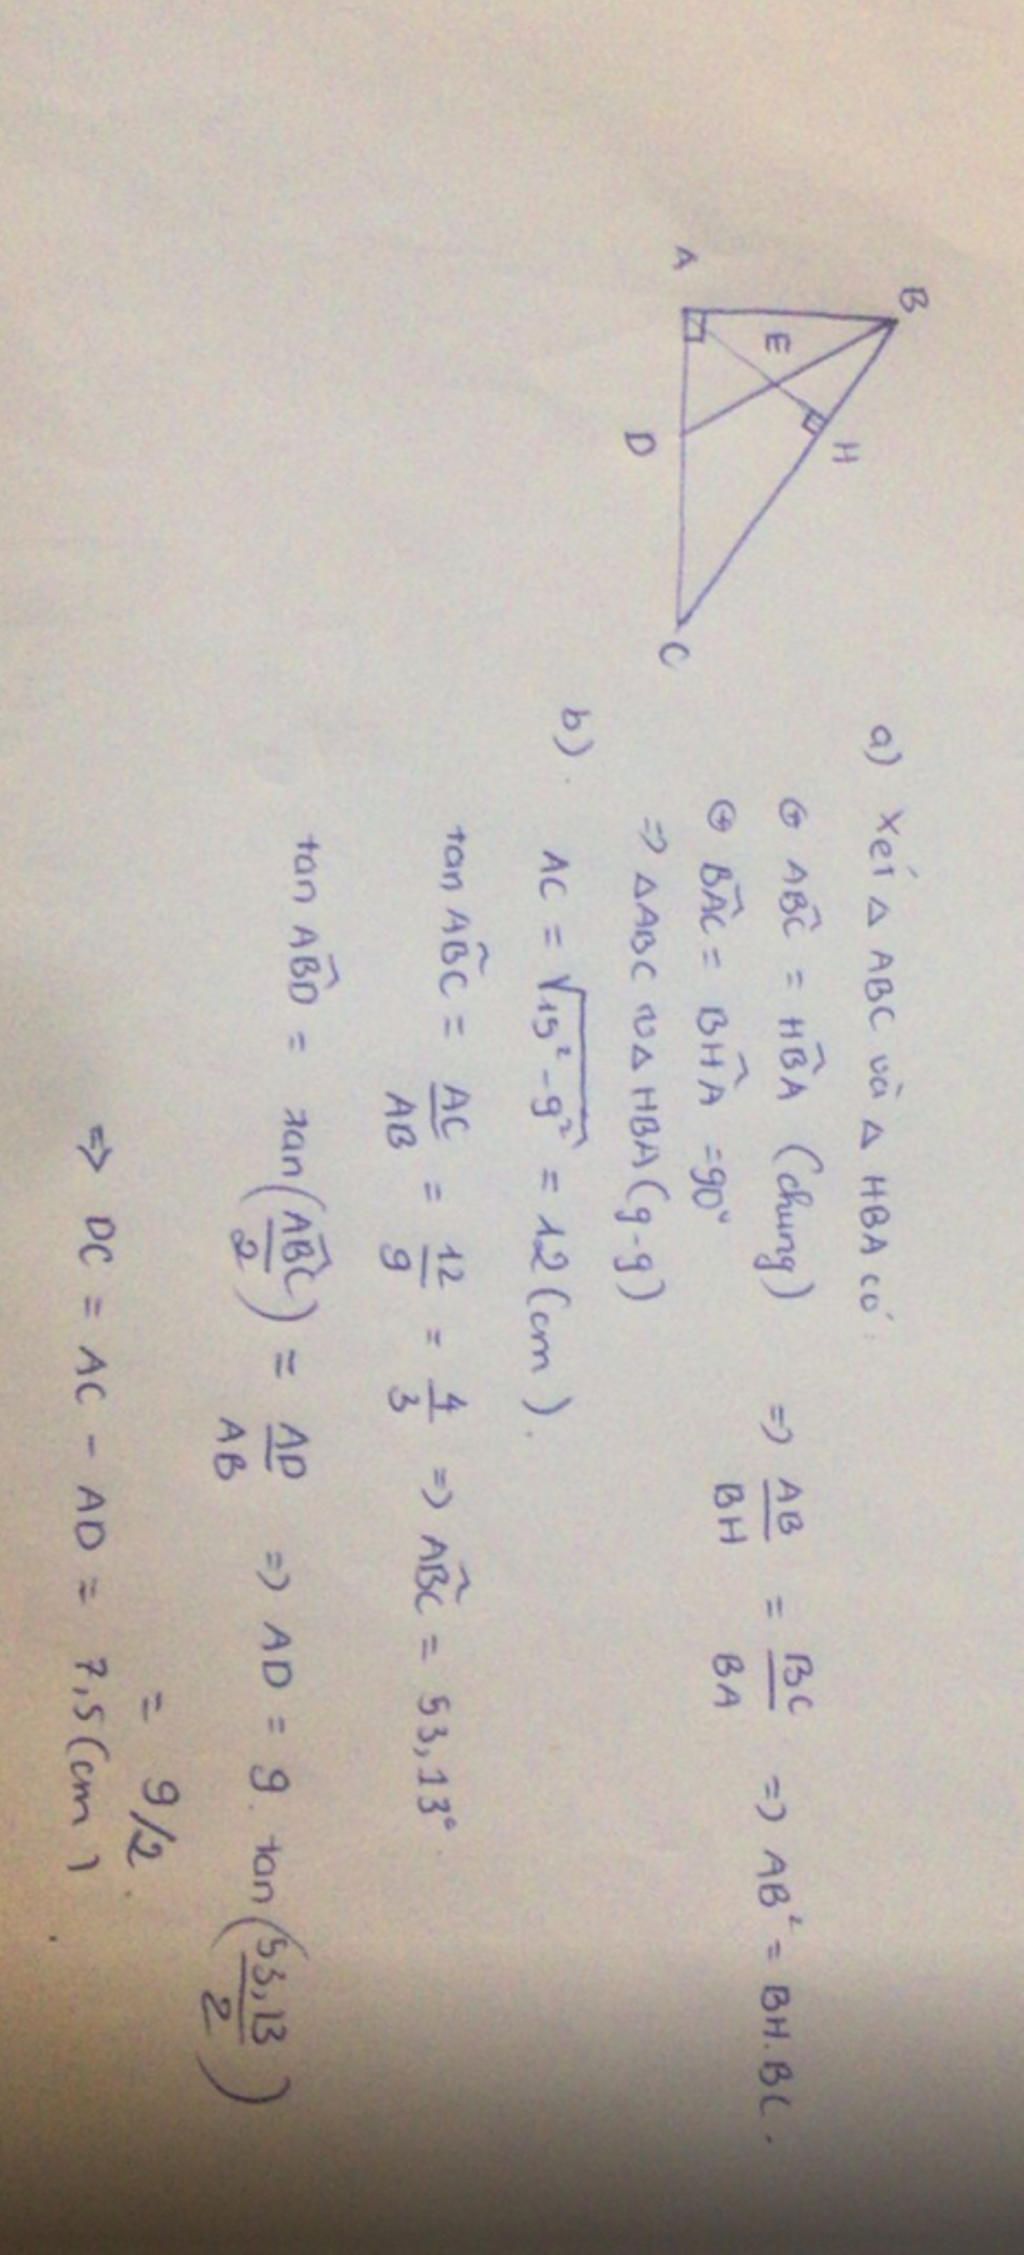 B
A
E
H
D
C
a) Xét △ ABC và △ HBA có:
⊕ ABĈ = HBÂ (chung)
⊕ BÂC = BĤA = 90°
⇒ △ABC ∽ △ HBA (g-g)
⇒ AB/BH = BC/BA ⇒ AB² = BH.BC.
b) AC = √(15² - 9²) = 12 (cm).
tan AB̂C = AC/AB = 12/9 = 4/3 ⇒ AB̂C = 53,13°.
tan AB̂D = tan(AB̂C/2) = AD/AB ⇒ AD = 9. tan(53,13/2)
= 9/2.
⇒ DC = AC - AD = 7,5 (cm).